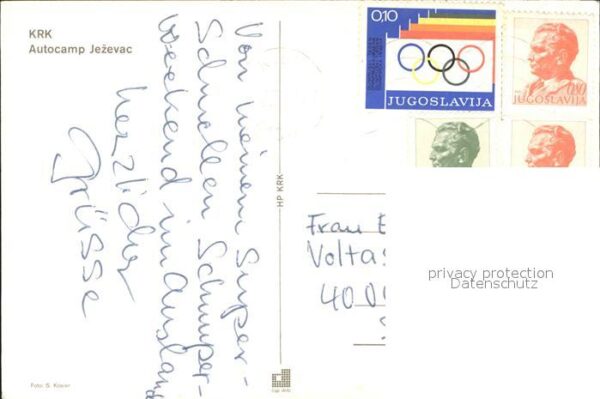 KRK
Autocamp Ježevac
Von meinem Super-
Schnellen Schnupper-
Weekend im Ausland
herzliche
Grüsse
HP KRK
0,10
JUGOSLAVIJA
0,80
JUGOSLAVIJA
Frau E
Voltas
400
privacy protection
Datenschutz
Foto: S. Kosier